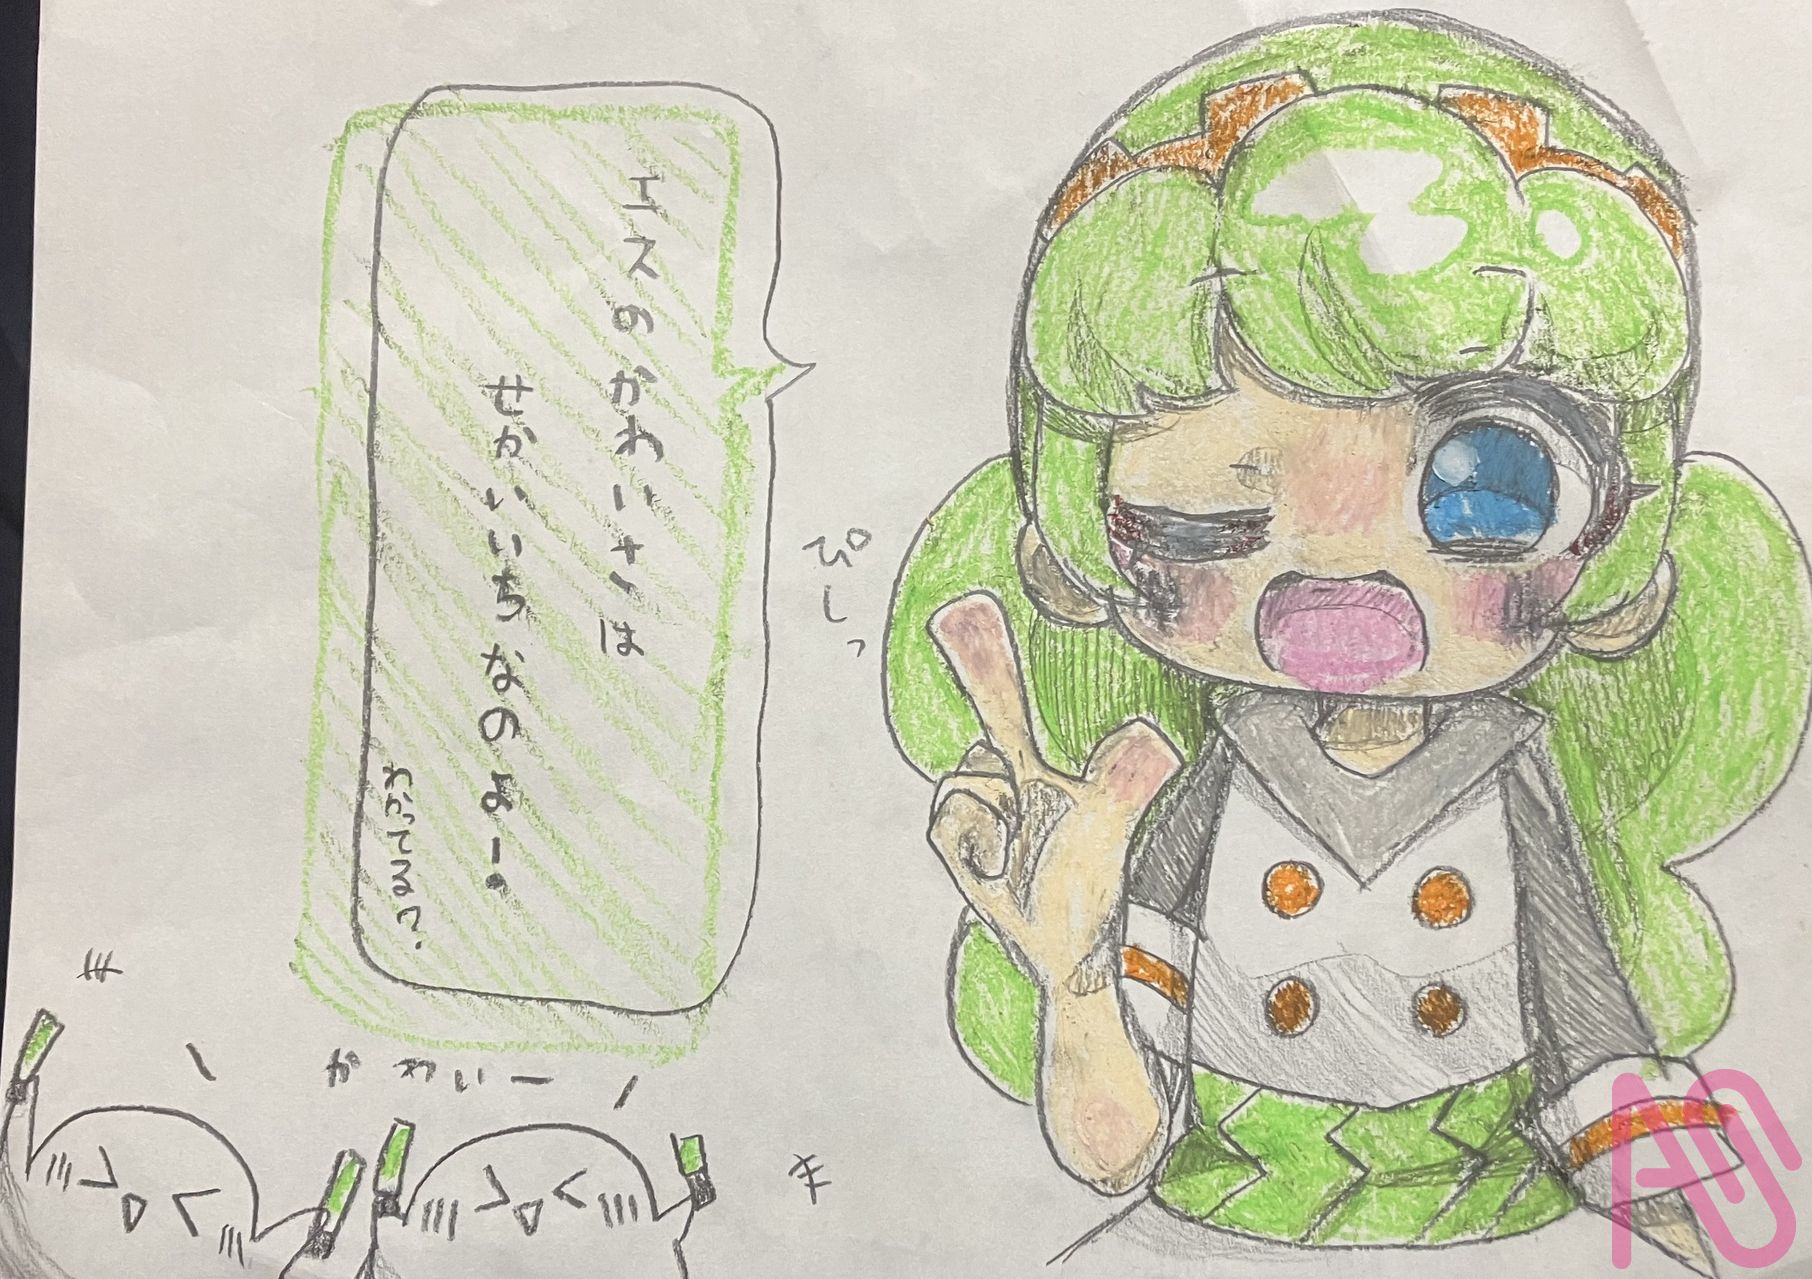 エスのかわいさは
せかいいちなのよー!
わかってる?
ぴしっ
かわいー
キ
キ